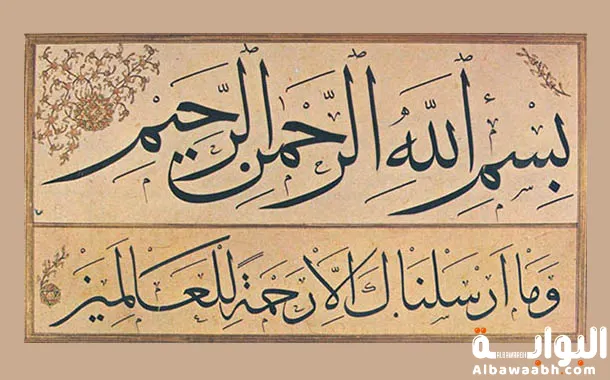 بِسْمِ اللهِ الرَّحْمٰنِ الرَّحِيمِ
وَمَا اَرْسَلْنَاكَ اِلَّا رَحْمَةً لِلْعَالَمِينَ
البوابة
ALBAWABEH
Albawaabh.com